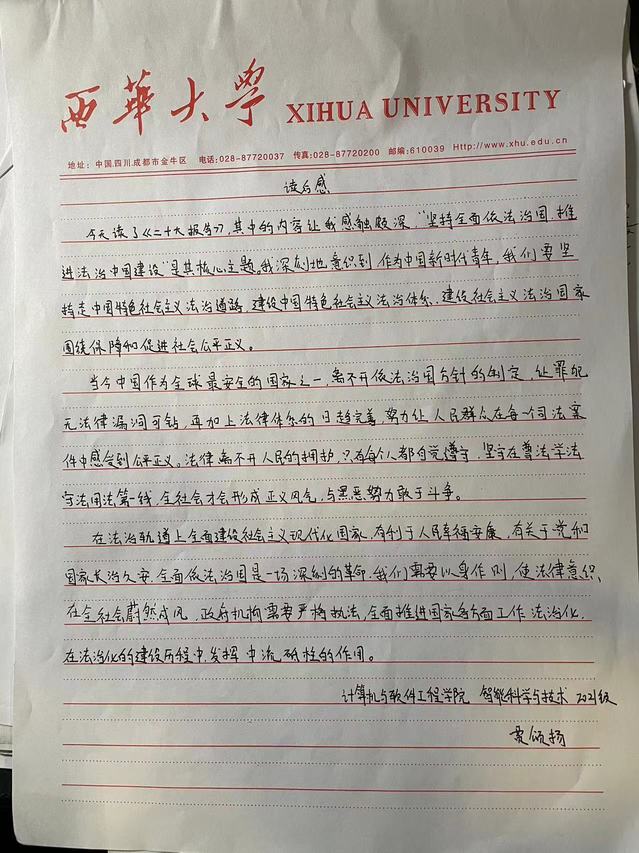 西華大學 XIHUA UNIVERSITY
地址：中国.四川.成都市金牛区 电话:028-87720037 传真:028-87720200 邮编:610039 Http://www.xhu.edu.cn
读后感
今天读了《二十大报告》，其中的内容让我感触颇深，“坚持全面依法治国，推
进法治中国建设”是其核心主题。我深刻地意识到，作为中国新时代青年，我们要坚
持走中国特色社会主义法治道路，建设中国特色社会主义法治体系、建设社会主义法治国家
围绕保障和促进社会公平正义。
当今中国作为全球最安全的国家之一，离不开依法治国方针的制定，让罪犯
无法律漏洞可钻，再加上法律体系的日趋完善，努力让人民群众在每一个司法案
件中感受到公平正义。法律离不开人民的拥护，只有每个人都自觉遵守，坚守在尊法学法
守法用法第一线，全社会才会形成正义风气，与黑恶势力敢于斗争。
在法治轨道上全面建设社会主义现代化国家，有利于人民幸福安康，有关于党和
国家长治久安，全面依法治国是一场深刻的革命，我们需要以身作则，使法律意识
在全社会蔚然成风，政府机构需要严格执法，全面推进国家各方面工作法治化，
在法治化的建设历程中，发挥中流砥柱的作用。
计算机与软件工程学院 智能科学与技术 2021级
颂扬